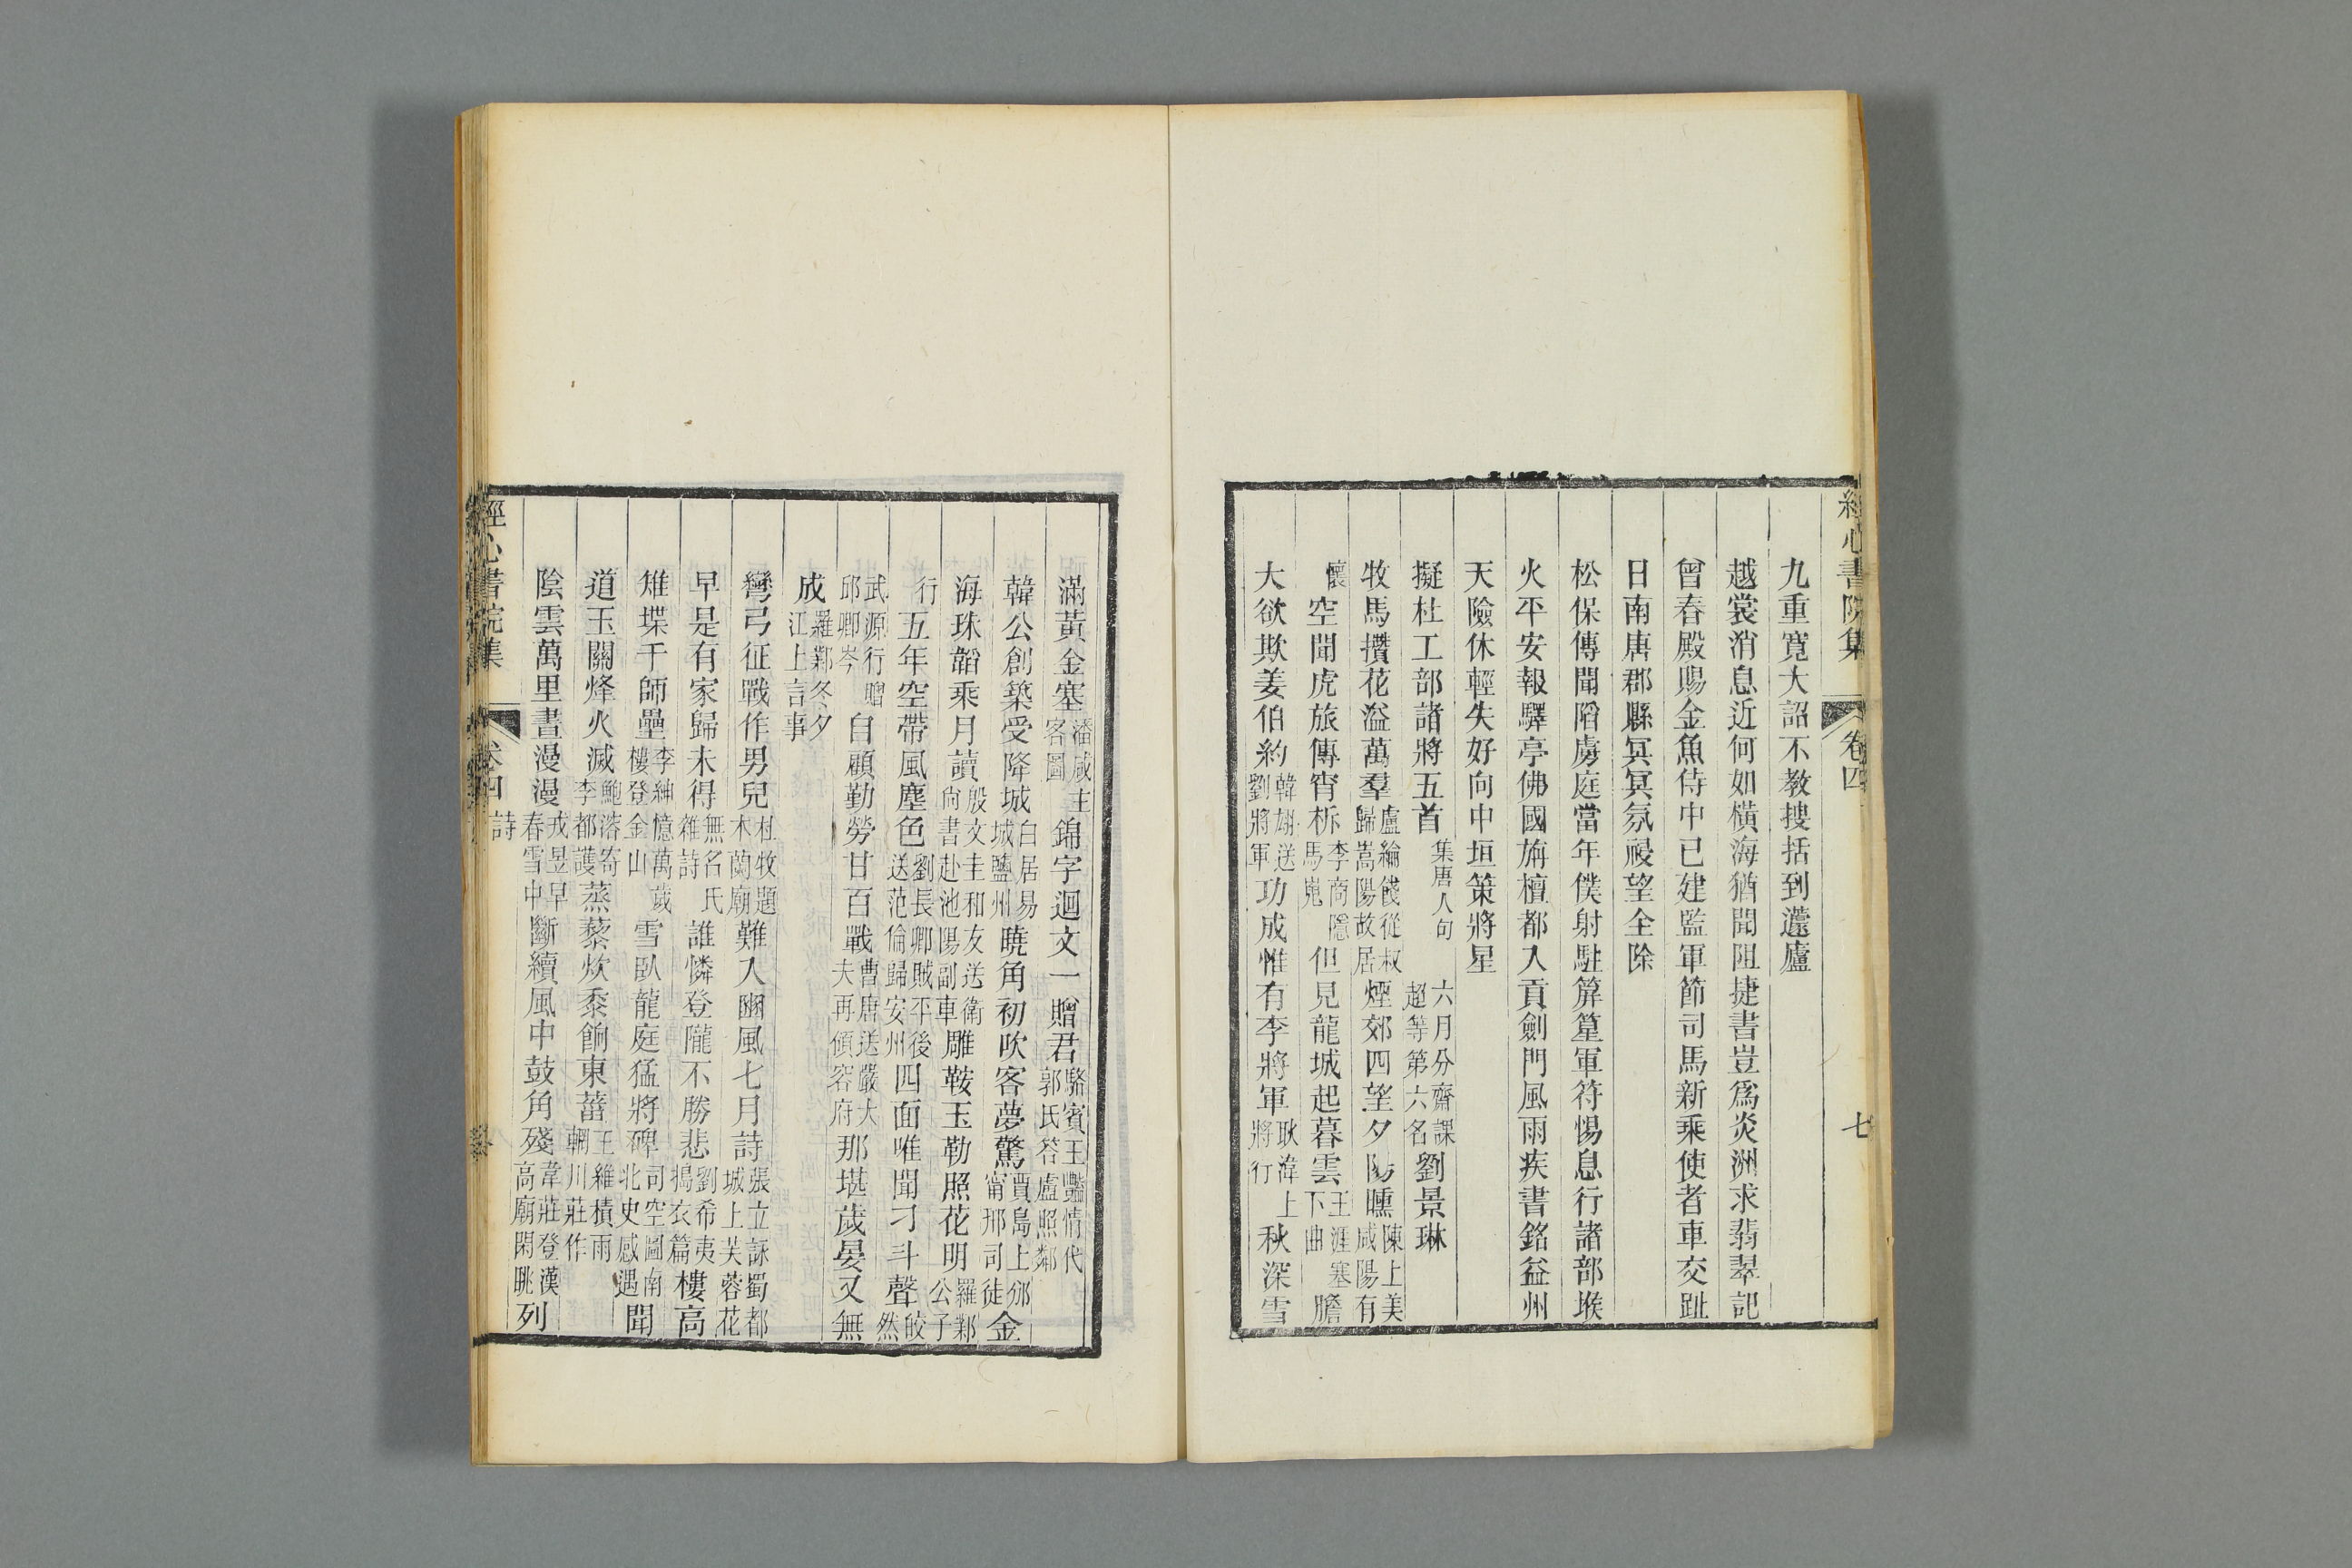 經心書院集 卷四 七
九重寬大詔不教搜括到蘧廬
越裳消息近何如橫海猶聞阻捷書豈爲炎洲求翡翠記
曾春殿賜金魚侍中已建監軍節司馬新乘使者車交趾
日南唐郡縣冥冥氛祲望全除
松保傳聞陷虜庭當年僕射駐筭篁軍符惕息行諸部堠
火平安報驛亭佛國旃檀都入貢劍門風雨疾書銘益州
天險休輕失好向中垣策將星
擬杜工部諸將五首集唐人句 六月分齋課超等第六名劉景琳
牧馬攢花溢萬羣盧綸餞從叔歸嵩陽故居煙郊四望夕陽曛陳上美咸陽有
懷空聞虎旅傳宵柝李商隱馬嵬但見龍城起暮雲王涯塞下曲膽
大欲欺姜伯約韓翃送劉將軍功成惟有李將軍耿湋上將行秋深雪
滿黃金塞潘咸主客圖錦字迴文一贈君駱賓王豔情代郭氏答盧照鄰
韓公創築受降城白居易城鹽州曉角初吹客夢驚賈島上邠甯邢司徒金
海珠韜乘月讀殷文圭和友送衛尚書赴池陽副車雕鞍玉勒照花明羅鄴公子
行五年空帶風塵色劉長卿賊平後送范倫歸安州四面唯聞刁斗聲皎然
武源行贈邱卿岑自顧勤勞甘百戰曹唐送嚴大夫再領容府那堪歲晏又無
成羅鄴冬夕江上言事
彎弓征戰作男兒杜牧題木蘭廟難入豳風七月詩張立詠蜀都城上芙蓉花
早是有家歸未得無名氏雜詩誰憐登隴不勝悲劉希夷搗衣篇樓高
雉堞千師壘李紳憶萬歲樓登金山雪臥龍庭猛將碑司空圖南北史感遇聞
道玉關烽火滅鮑溶寄李都護蒸藜炊黍餉東菑王維積雨輞川莊作
陰雲萬里晝漫漫戎昱早春雪中斷續風中鼓角殘韋莊登漢高廟閑眺列
經心書院集 卷四 詩